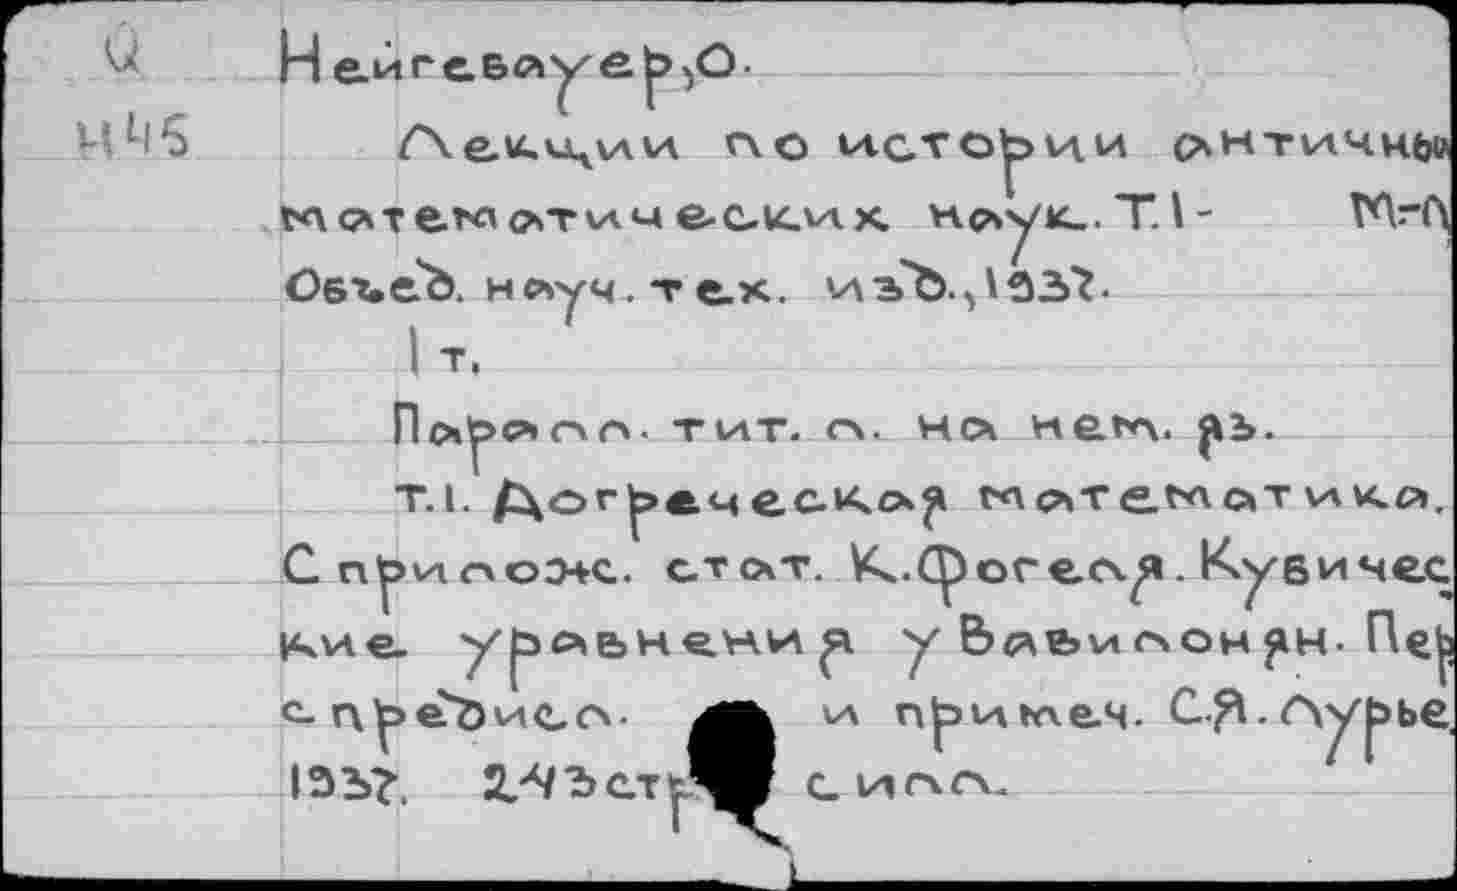 Й
Н45
Нейгебауер, О.
Лекции по истории античны
математических наук. Т.1- М.-Л
Объед. науч. тех. изд., 1937.
1 т.
Паралл. тит. л. на нем. яз.
Т.1. Догреческая математика.
С прилож. стат. К. Фогеля. Кубичес
кие уравнения у Вавилонян. Пер
с предисл. и примеч. С.Я. Лурье.
1937. 243 стр с илл.